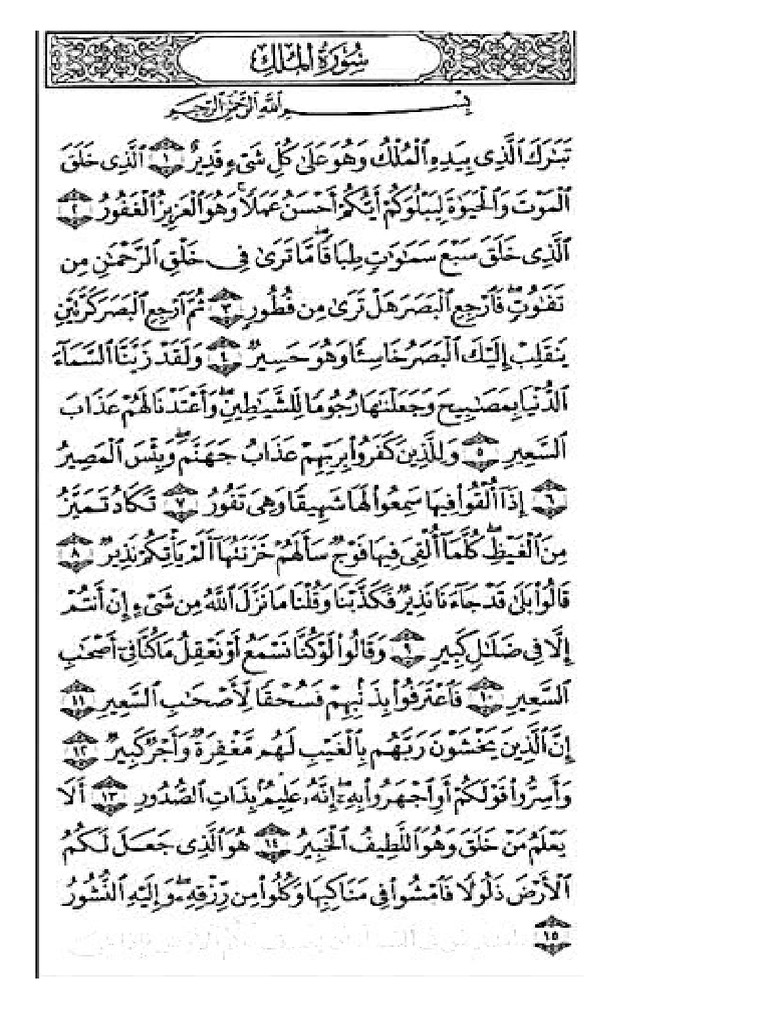 سُورَةُ الْمُلْكِ
بِسْمِ اللَّهِ الرَّحْمَٰنِ الرَّحِيمِ
تَبَارَكَ الَّذِي بِيَدِهِ الْمُلْكُ وَهُوَ عَلَىٰ كُلِّ شَيْءٍ قَدِيرٌ ١ الَّذِي خَلَقَ
الْمَوْتَ وَالْحَيَوٰةَ لِيَبْلُوَكُمْ أَيُّكُمْ أَحْسَنُ عَمَلًا ۚ وَهُوَ الْعَزِيزُ الْغَفُورُ ٢
الَّذِي خَلَقَ سَبْعَ سَمَاوَاتٍ طِبَاقًا ۖ مَّا تَرَىٰ فِي خَلْقِ الرَّحْمَٰنِ مِن
تَفَاوُتٍ ۖ فَارْجِعِ الْبَصَرَ هَلْ تَرَىٰ مِن فُطُورٍ ٣ ثُمَّ ارْجِعِ الْبَصَرَ كَرَّتَيْنِ
يَنقَلِبْ إِلَيْكَ الْبَصَرُ خَاسِئًا وَهُوَ حَسِيرٌ ٤ وَلَقَدْ زَيَّنَّا السَّمَاءَ
الدُّنْيَا بِمَصَابِيحَ وَجَعَلْنَاهَا رُجُومًا لِّلشَّيَاطِينِ ۖ وَأَعْتَدْنَا لَهُمْ عَذَابَ
السَّعِيرِ ٥ وَلِلَّذِينَ كَفَرُوا بِرَبِّهِمْ عَذَابُ جَهَنَّمَ ۖ وَبِئْسَ الْمَصِيرُ
٦ إِذَا أُلْقُوا فِيهَا سَمِعُوا لَهَا شَهِيقًا وَهِيَ تَفُورُ ٧ تَكَادُ تَمَيَّزُ
مِنَ الْغَيْظِ ۖ كُلَّمَا أُلْقِيَ فِيهَا فَوْجٌ سَأَلَهُمْ خَزَنَتُهَا أَلَمْ يَأْتِكُمْ نَذِيرٌ ٨
قَالُوا بَلَىٰ قَدْ جَاءَنَا نَذِيرٌ فَكَذَّبْنَا وَقُلْنَا مَا نَزَّلَ اللَّهُ مِن شَيْءٍ إِنْ أَنتُمْ
إِلَّا فِي ضَلَالٍ كَبِيرٍ ٩ وَقَالُوا لَوْ كُنَّا نَسْمَعُ أَوْ نَعْقِلُ مَا كُنَّا فِي أَصْحَابِ
السَّعِيرِ ١٠ فَاعْتَرَفُوا بِذَنبِهِمْ فَسُحْقًا لِّأَصْحَابِ السَّعِيرِ ١١
إِنَّ الَّذِينَ يَخْشَوْنَ رَبَّهُم بِالْغَيْبِ لَهُم مَّغْفِرَةٌ وَأَجْرٌ كَبِيرٌ ١٢
وَأَسِرُّوا قَوْلَكُمْ أَوِ اجْهَرُوا بِهِ ۖ إِنَّهُ عَلِيمٌ بِذَاتِ الصُّدُورِ ١٣ أَلَا
يَعْلَمُ مَنْ خَلَقَ وَهُوَ اللَّطِيفُ الْخَبِيرُ ١٤ هُوَ الَّذِي جَعَلَ لَكُمُ
الْأَرْضَ ذَلُولًا فَامْشُوا فِي مَنَاكِبِهَا وَكُلُوا مِن رِّزْقِهِ ۖ وَإِلَيْهِ النُّشُورُ
١٥